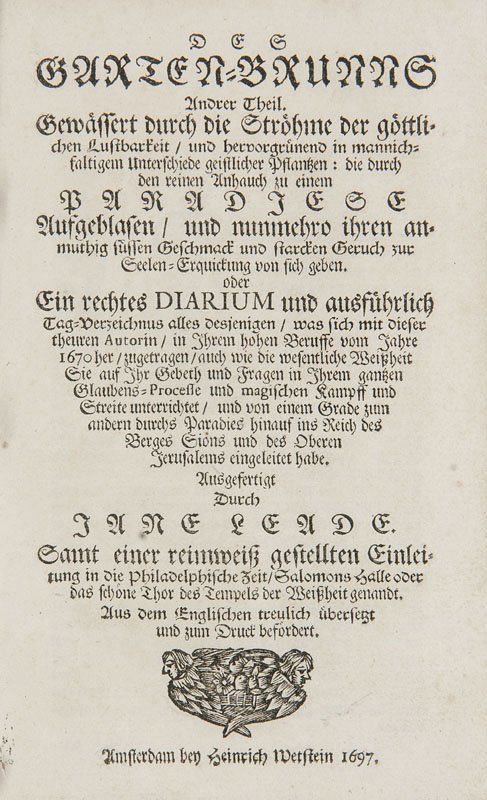 DES
GARTEN-BRUNNS
Andrer Theil.
Gewässert durch die Ströhme der göttli-
chen Lustbarkeit / und hervorgrünend in mannich-
faltigem Unterschiede geistlicher Pflantzen: die durch
den reinen Anhauch zu einem
PARADIESE
Aufgeblasen / und nunmehro ihren an-
muthig süssen Geschmack und starcken Geruch zur
Seelen-Erquickung von sich geben.
oder
Ein rechtes DIARIUM und ausführlich
Tag-Verzeichnus alles desjenigen / was sich mit dieser
theuren Autorin / in Ihrem hohen Beruffe vom Jahre
1670 her / zugetragen / auch wie die wesentliche Weißheit
Sie auf Ihr Gebeth und Fragen in Ihrem gantzen
Glaubens-Processe und magischen Kampff und
Streite unterrichtet / und von einem Grade zum
andern durchs Paradies hinauf ins Reich des
Berges Sions und des Oberen
Jerusalems eingeleitet habe.
Ausgefertigt
Durch
JANE LEADE.
Samt einer reimweiß gestellten Einlei-
tung in die Philadelphische Zeit / Salomons Halle oder
das schöne Thor des Tempels der Weißheit genandt.
Aus dem Englischen treulich übersetzt
und zum Druck befördert.
Amsterdam bey Heinrich Wetstein 1697.